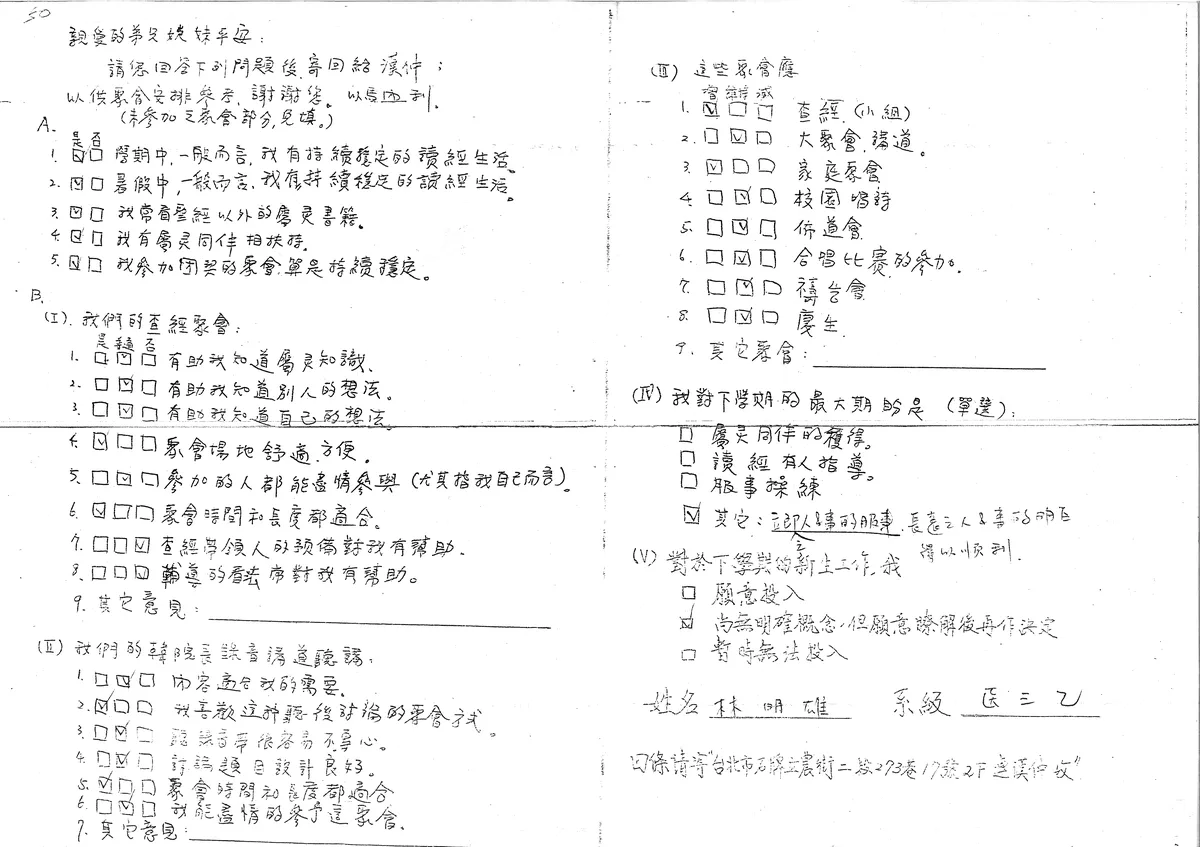 50
親愛的弟兄姊妹平安:
請您回答下列問題後,寄回給漢仲;
以供聚會安排參考,謝謝您。以馬內利.
(未參加之聚會部分,免填。)
A.
是 否
1. ☑☐ 學期中,一般而言,我有持續穩定的讀經生活。
2. ☑☐ 暑假中,一般而言,我有持續穩定的讀經生活。
3. ☑☐ 我常看聖經以外的屬灵書籍。
4. ☑☐ 我有屬灵同伴相扶持.
5. ☑☐ 我參加團契的聚會,算是持續穩定。
B.
(I). 我們的查經聚會:
是 否
1. ☐☑☐ 有助我知道屬灵知識.
2. ☐☑☐ 有助我知道别人的想法。
3. ☐☑☐ 有助我知道自己的想法。
4. ☑☐☐ 聚會場地舒適.方便.
5. ☐☑☐ 參加的人都能盡情參與(尤其指我自己而言)。
6. ☑☐☐ 聚會時間和長度都適合。
7. ☐☐☑ 查經帶領人的預備對我有幫助.
8. ☐☐☑ 輔導的看法常對我有幫助。
9. 其它意見:
(II) 我們的韓院長錄音講道聽講:
1. ☐☑☐ 內容適合我的需要.
2. ☑☐☐ 我喜歡這种聽後討論的聚會方式。
3. ☐☑☐ 聽錄音帶很容易不專心。
4. ☐☑☐ 討論題目設計良好。
5. ☑☐☐ 聚會時間和長度都適合
6. ☐☑☐ 我能盡情的參予這聚會.
7. 其它意見:
(III) 這些聚會應
增 維持 減
1. ☑☐☐ 查經.(小組)
2. ☐☑☐ 大聚會.講道。
3. ☑☐☐ 家庭聚會
4. ☐☑☐ 校園唱詩
5. ☐☑☐ 佈道會.
6. ☐☑☐ 合唱比賽的參加.
7. ☐☑☐ 禱告會
8. ☐☑☐ 慶生.
9. 其它聚會:
(IV) 我對下學期的最大期盼是 (單選):
☐ 屬灵同伴的獲得。
☐ 讀經有人指導。
☐ 服事操練
☑ 其它:
得以順利.
(V) 對於下學期的新生工作,我
☐ 願意投入
☑ 尚無明確概念,但願意瞭解後再作決定
☐ 暫時無法投入
姓名 林明雄 系級 医三乙
回條請寄"台北市石牌立農街二段273巷17號2F 連漢仲收"